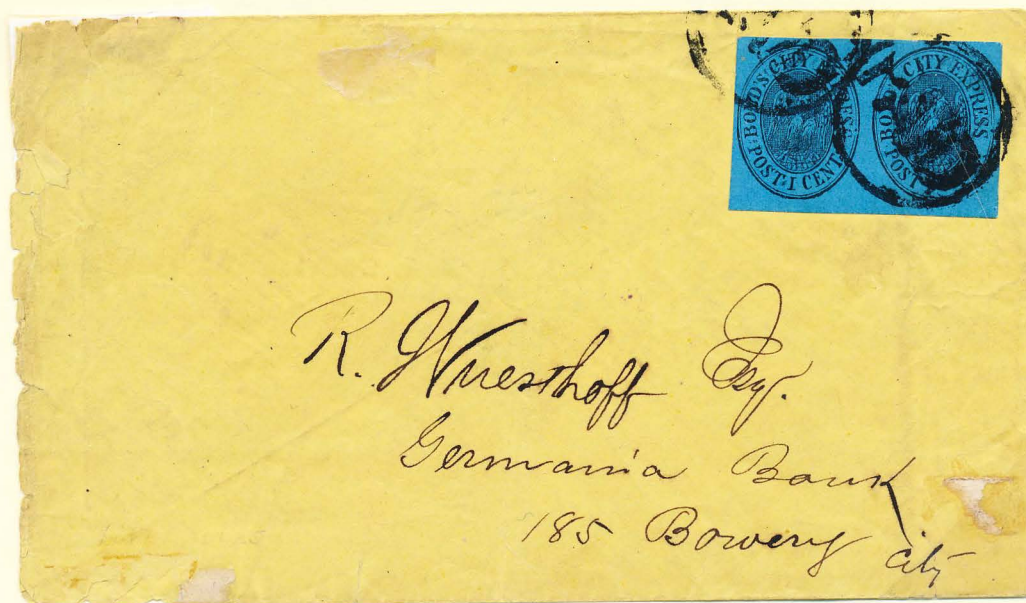 BOYD'S CITY EXPRESS
POST 1 CENT
BOYD'S CITY EXPRESS
POST
R. Wuesthoff Esq.
Germania Bank
185 Bowery
City